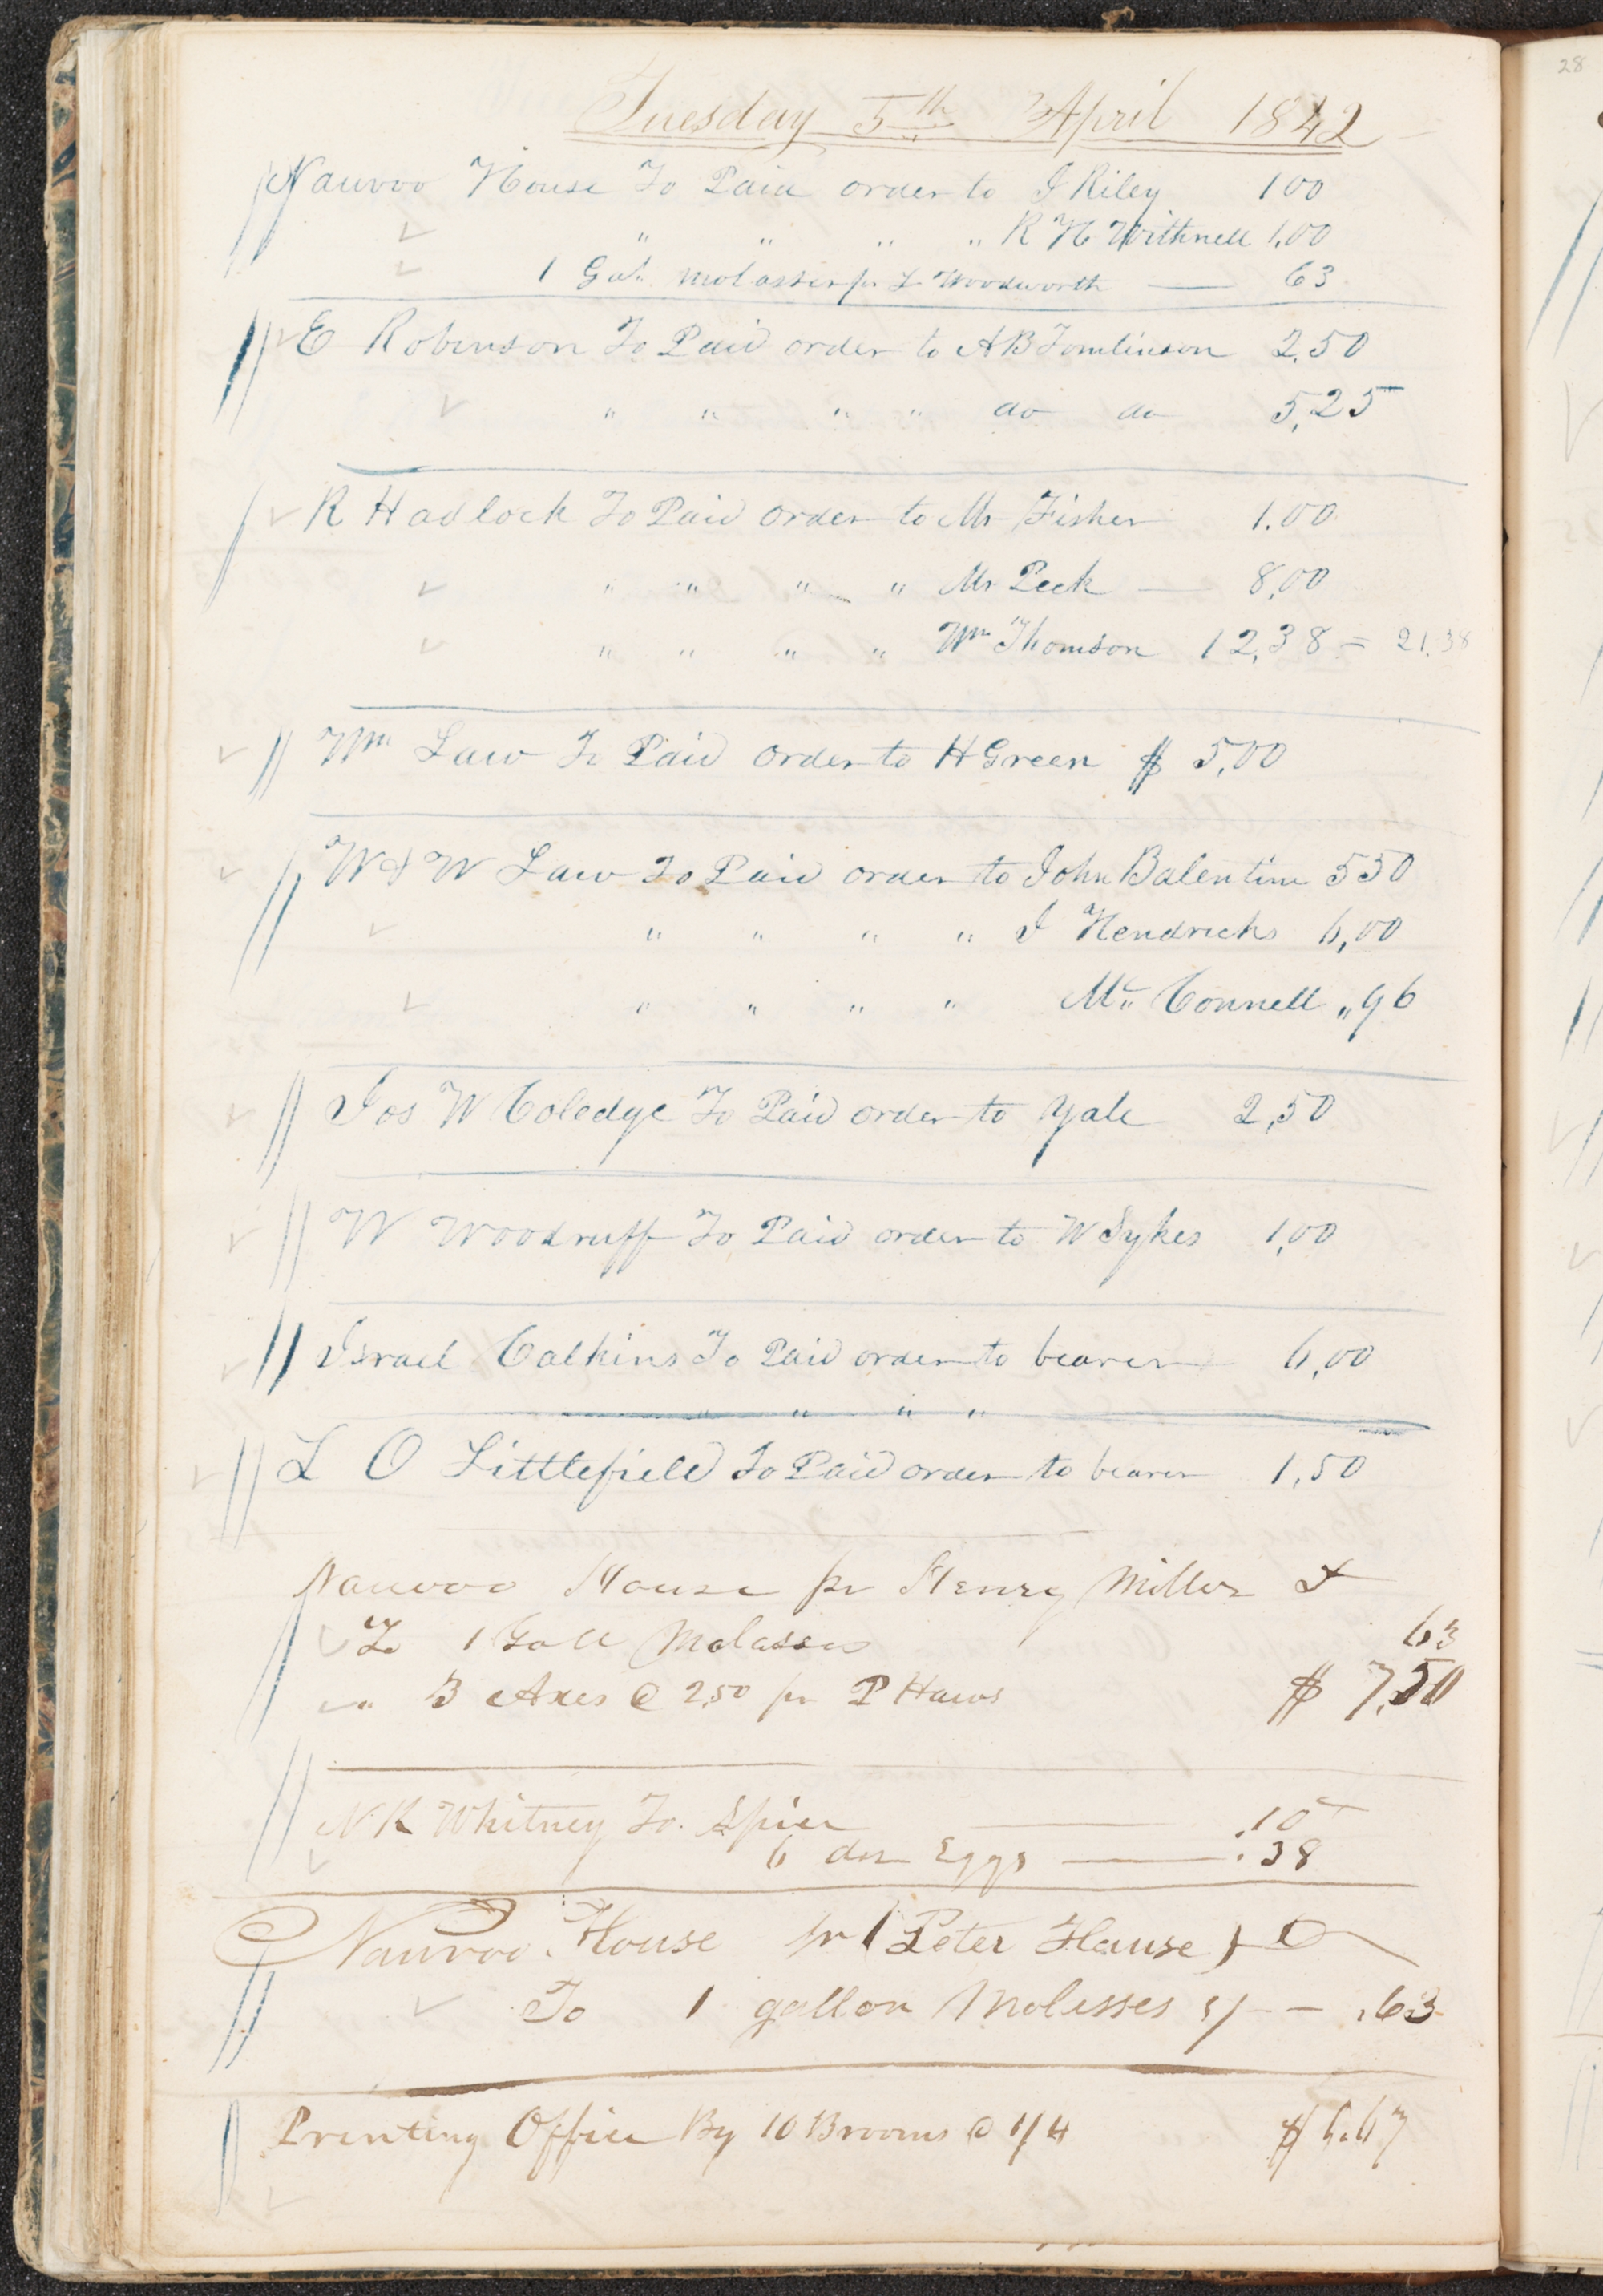 Tuesday 5th April 1842
Nauvoo House To Paid order to J Riley 1 00
" " " " R H Withnell 1,00
1 Gal. molasses pr L Woodworth — 63
E Robinson To Paid order to A B Tomlinson 2.50
" " " " do do 5,25
R Hadlock To Paid order to Mr Fisher 1.00
" " " " Mr Peck — 8,00
" " " " Wm Thomson 12,38 = 21.38
Wm Law To Paid order to H Green $ 5,00
W & W Law To Paid order to John Balentine 550
" " " " J Hendricks 6,00
" " " " Mc Connell " 96
Jos W Coledge To Paid order to Yale 2,50
W Woodruff To Paid order to W Sykes 1,00
Israel Calkins To Paid order to bearer 6,00
" " " "
L O Littlefield To Paid order to bearer 1,50
Nauvoo House pr Henry Miller
To 1 Gall Molasses 63
" 3 Axes @ 2,50 pr P Haws $ 7,50
N K Whitney To. Spice — .10
6 doz Eggs — .38
Nauvoo House pr (Peter Hause)
To 1 gallon Molisses 5/ - - .63
Printing Office By 10 Brooms @ 1/4 $ 6.67
28